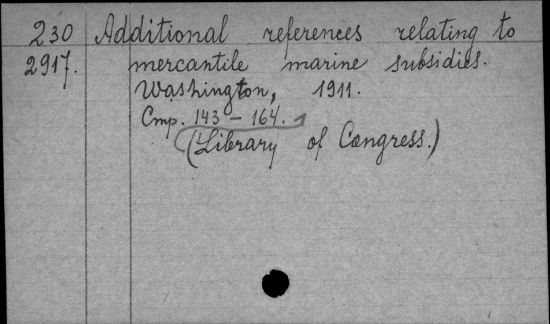 230 Additional references relating to
2917. mercantile marine subsidies.
Washington, 1911.
Стр. 143 – 164.
(Library of Congress.)